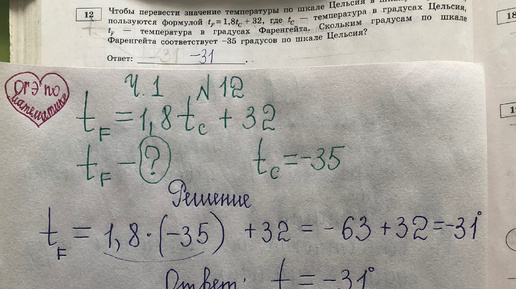 12
Чтобы перевести значение температуры по шкале Цельсия в
пользуются формулой tF = 1,8tC + 32, где tC — температура в градусах Цельсия,
tF — температура в градусах Фаренгейта. Скольким градусам по шкале
Фаренгейта соответствует −35 градусов по шкале Цельсия?
Ответ: −31
18
ОГЭ по
математике
Ч.1 №12
tF = 1,8tC + 32
tF − ? tC = −35
Решение
tF = 1,8 · (−35) + 32 = −63 + 32 = −31°
Ответ: t = −31°